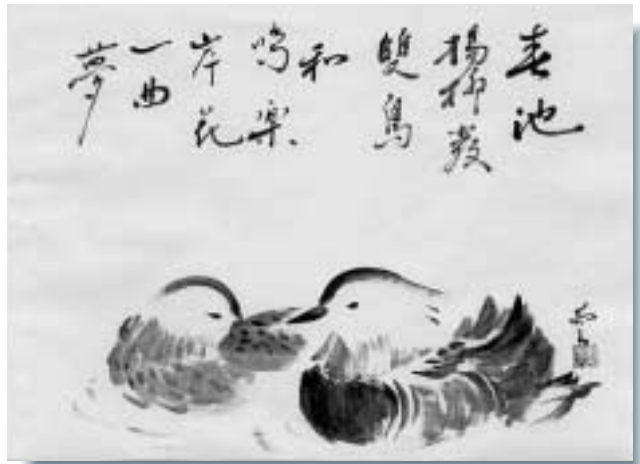 春池
楊柳發
雙鳥
和
鳴樂
岸花
一曲
夢